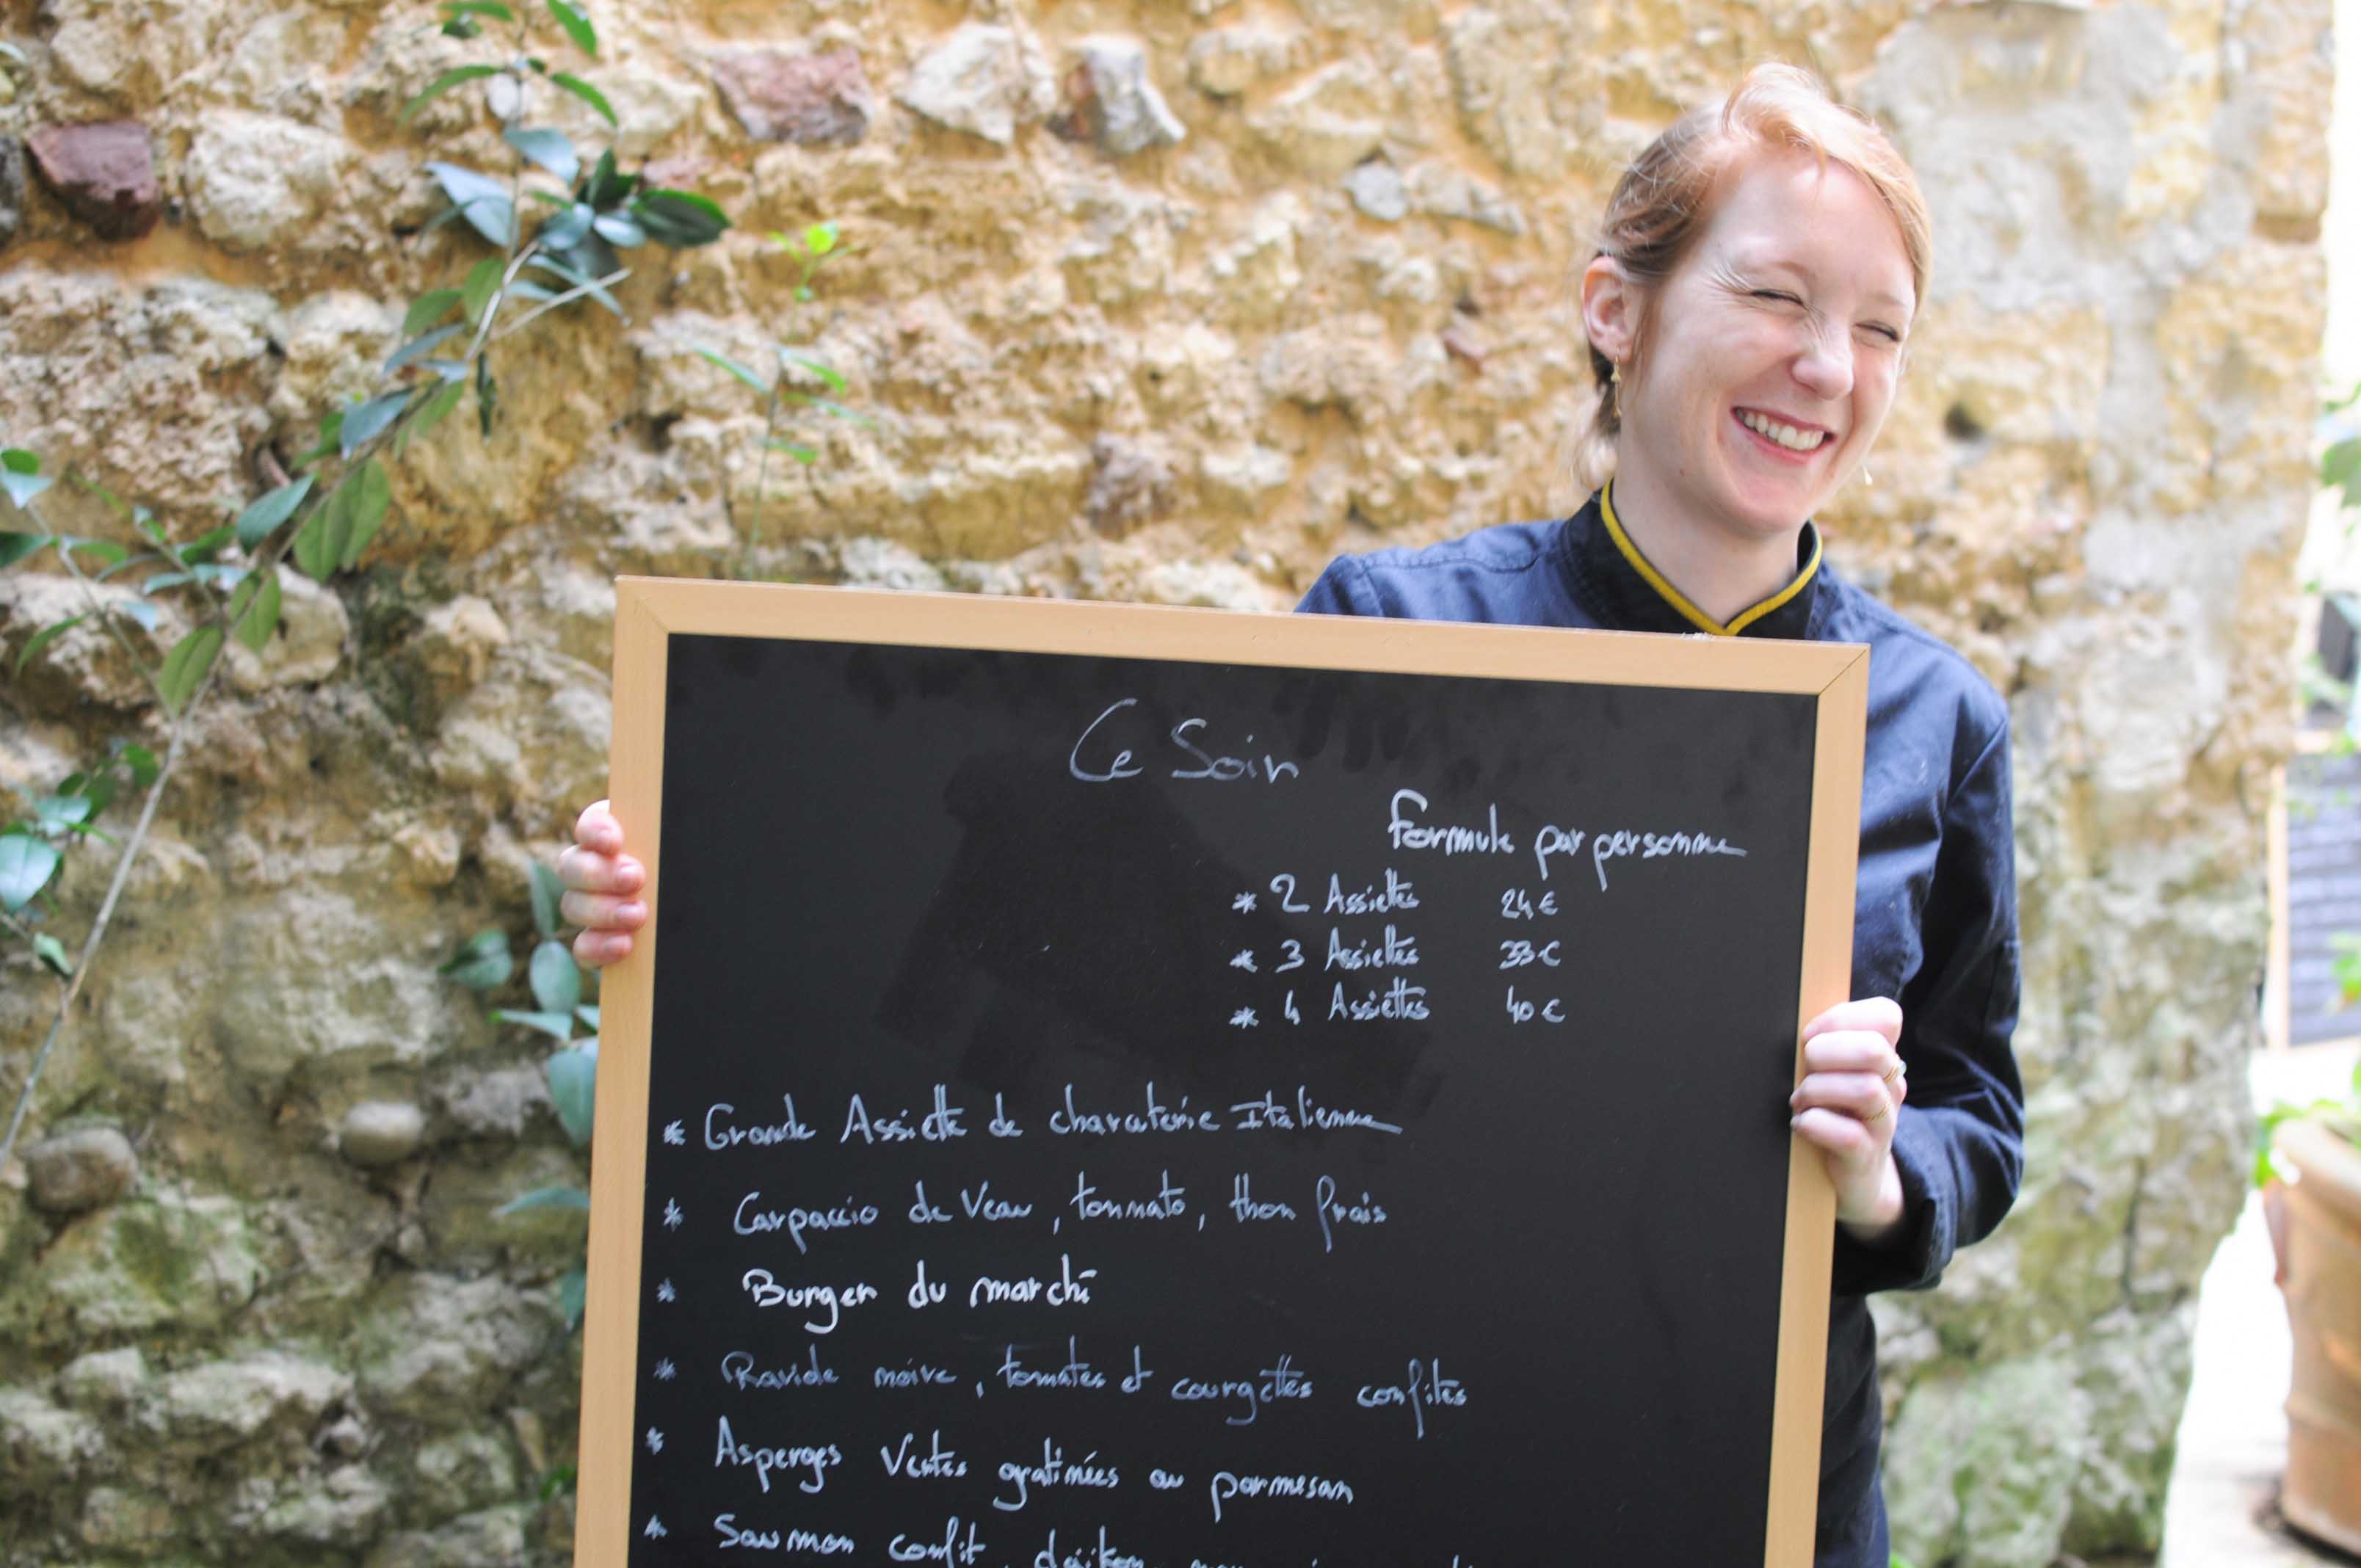 Ce Soir
Formule par personne
* 2 Assiettes 24€
* 3 Assiettes 33€
* 4 Assiettes 40€
* Grande Assiette de charcuterie Italienne
* Carpaccio de Veau, tonnato, thon frais
* Burger du marché
* Raviole noire, tomates et courgettes confites
* Asperges Vertes gratinées au parmesan
* Saumon confit, daikon,